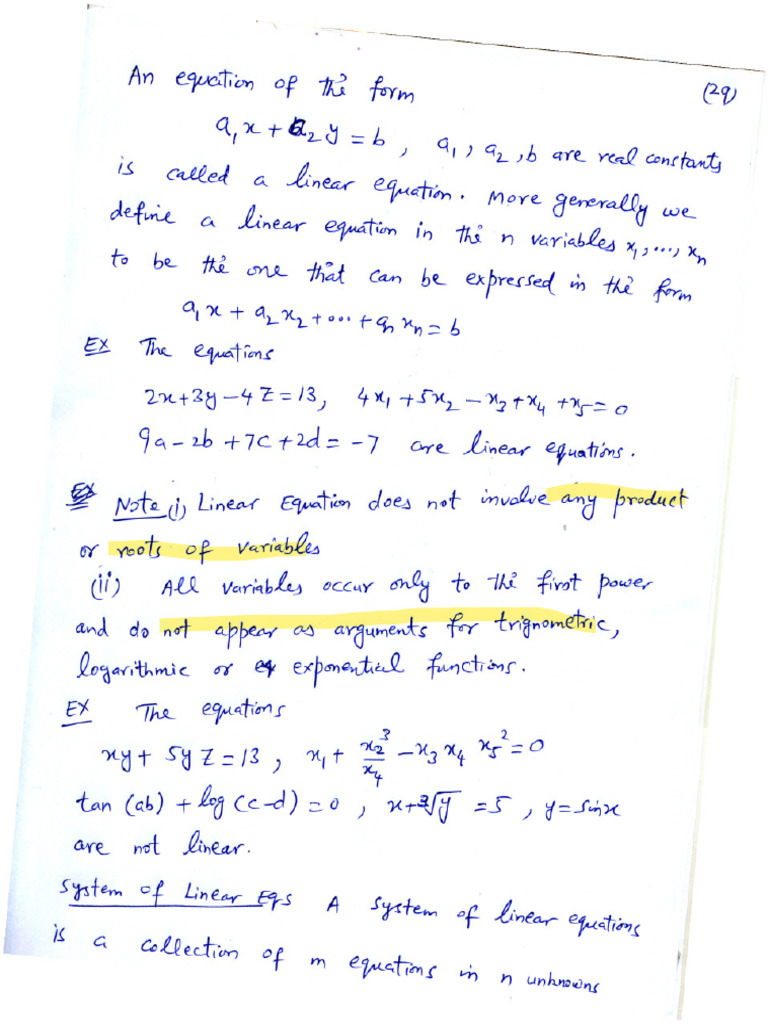 An equation of the form (29)
a₁x + a₂y = b , a₁, a₂, b are real constants
is called a linear equation. More generally we
define a linear equation in the n variables x₁, ..., xₙ
to be the one that can be expressed in the form
a₁x + a₂x₂ + ... + aₙxₙ = b
Ex The equations
2x+3y-4Z=13, 4x₁+5x₂-x₃+x₄+x₅=0
9a-2b+7c+2d=-7 are linear equations.
Note (i) Linear Equation does not involve any product
or roots of variables
(ii) All variables occur only to the first power
and do not appear as arguments for trignometric,
logarithmic or exponential functions.
Ex The equations
xy+5yZ=13, x₁+x₂³/x₄-x₃x₄x₅²=0
tan(ab)+log(c-d)=0, x+³√y=5, y=sinx
are not linear.
System of Linear Eqs A system of linear equations
is a collection of m equations in n unknowns